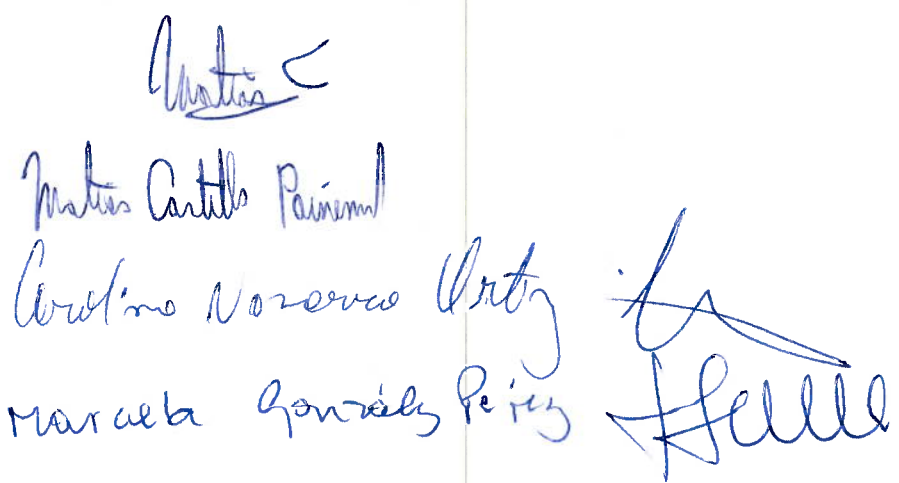 Matías C
Matías Castillo Painemil
Carolina Navarro Ortiz
Marcela González Pérez